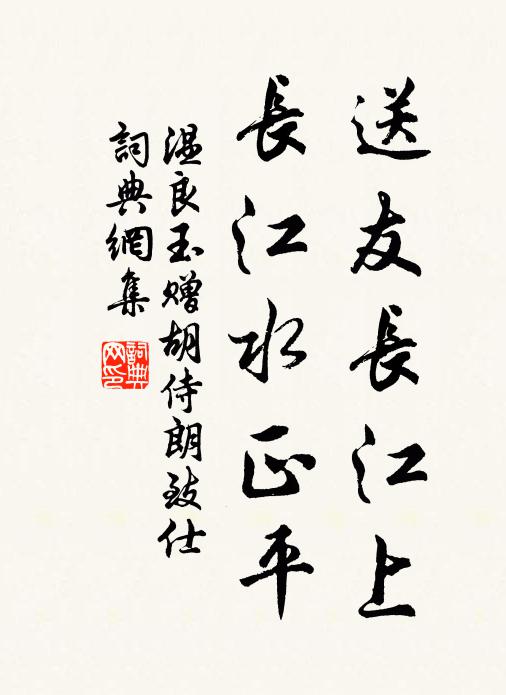 送友長江上
長江水正平
温良玉贈胡侍朗致仕
詞典網集
詞典网印